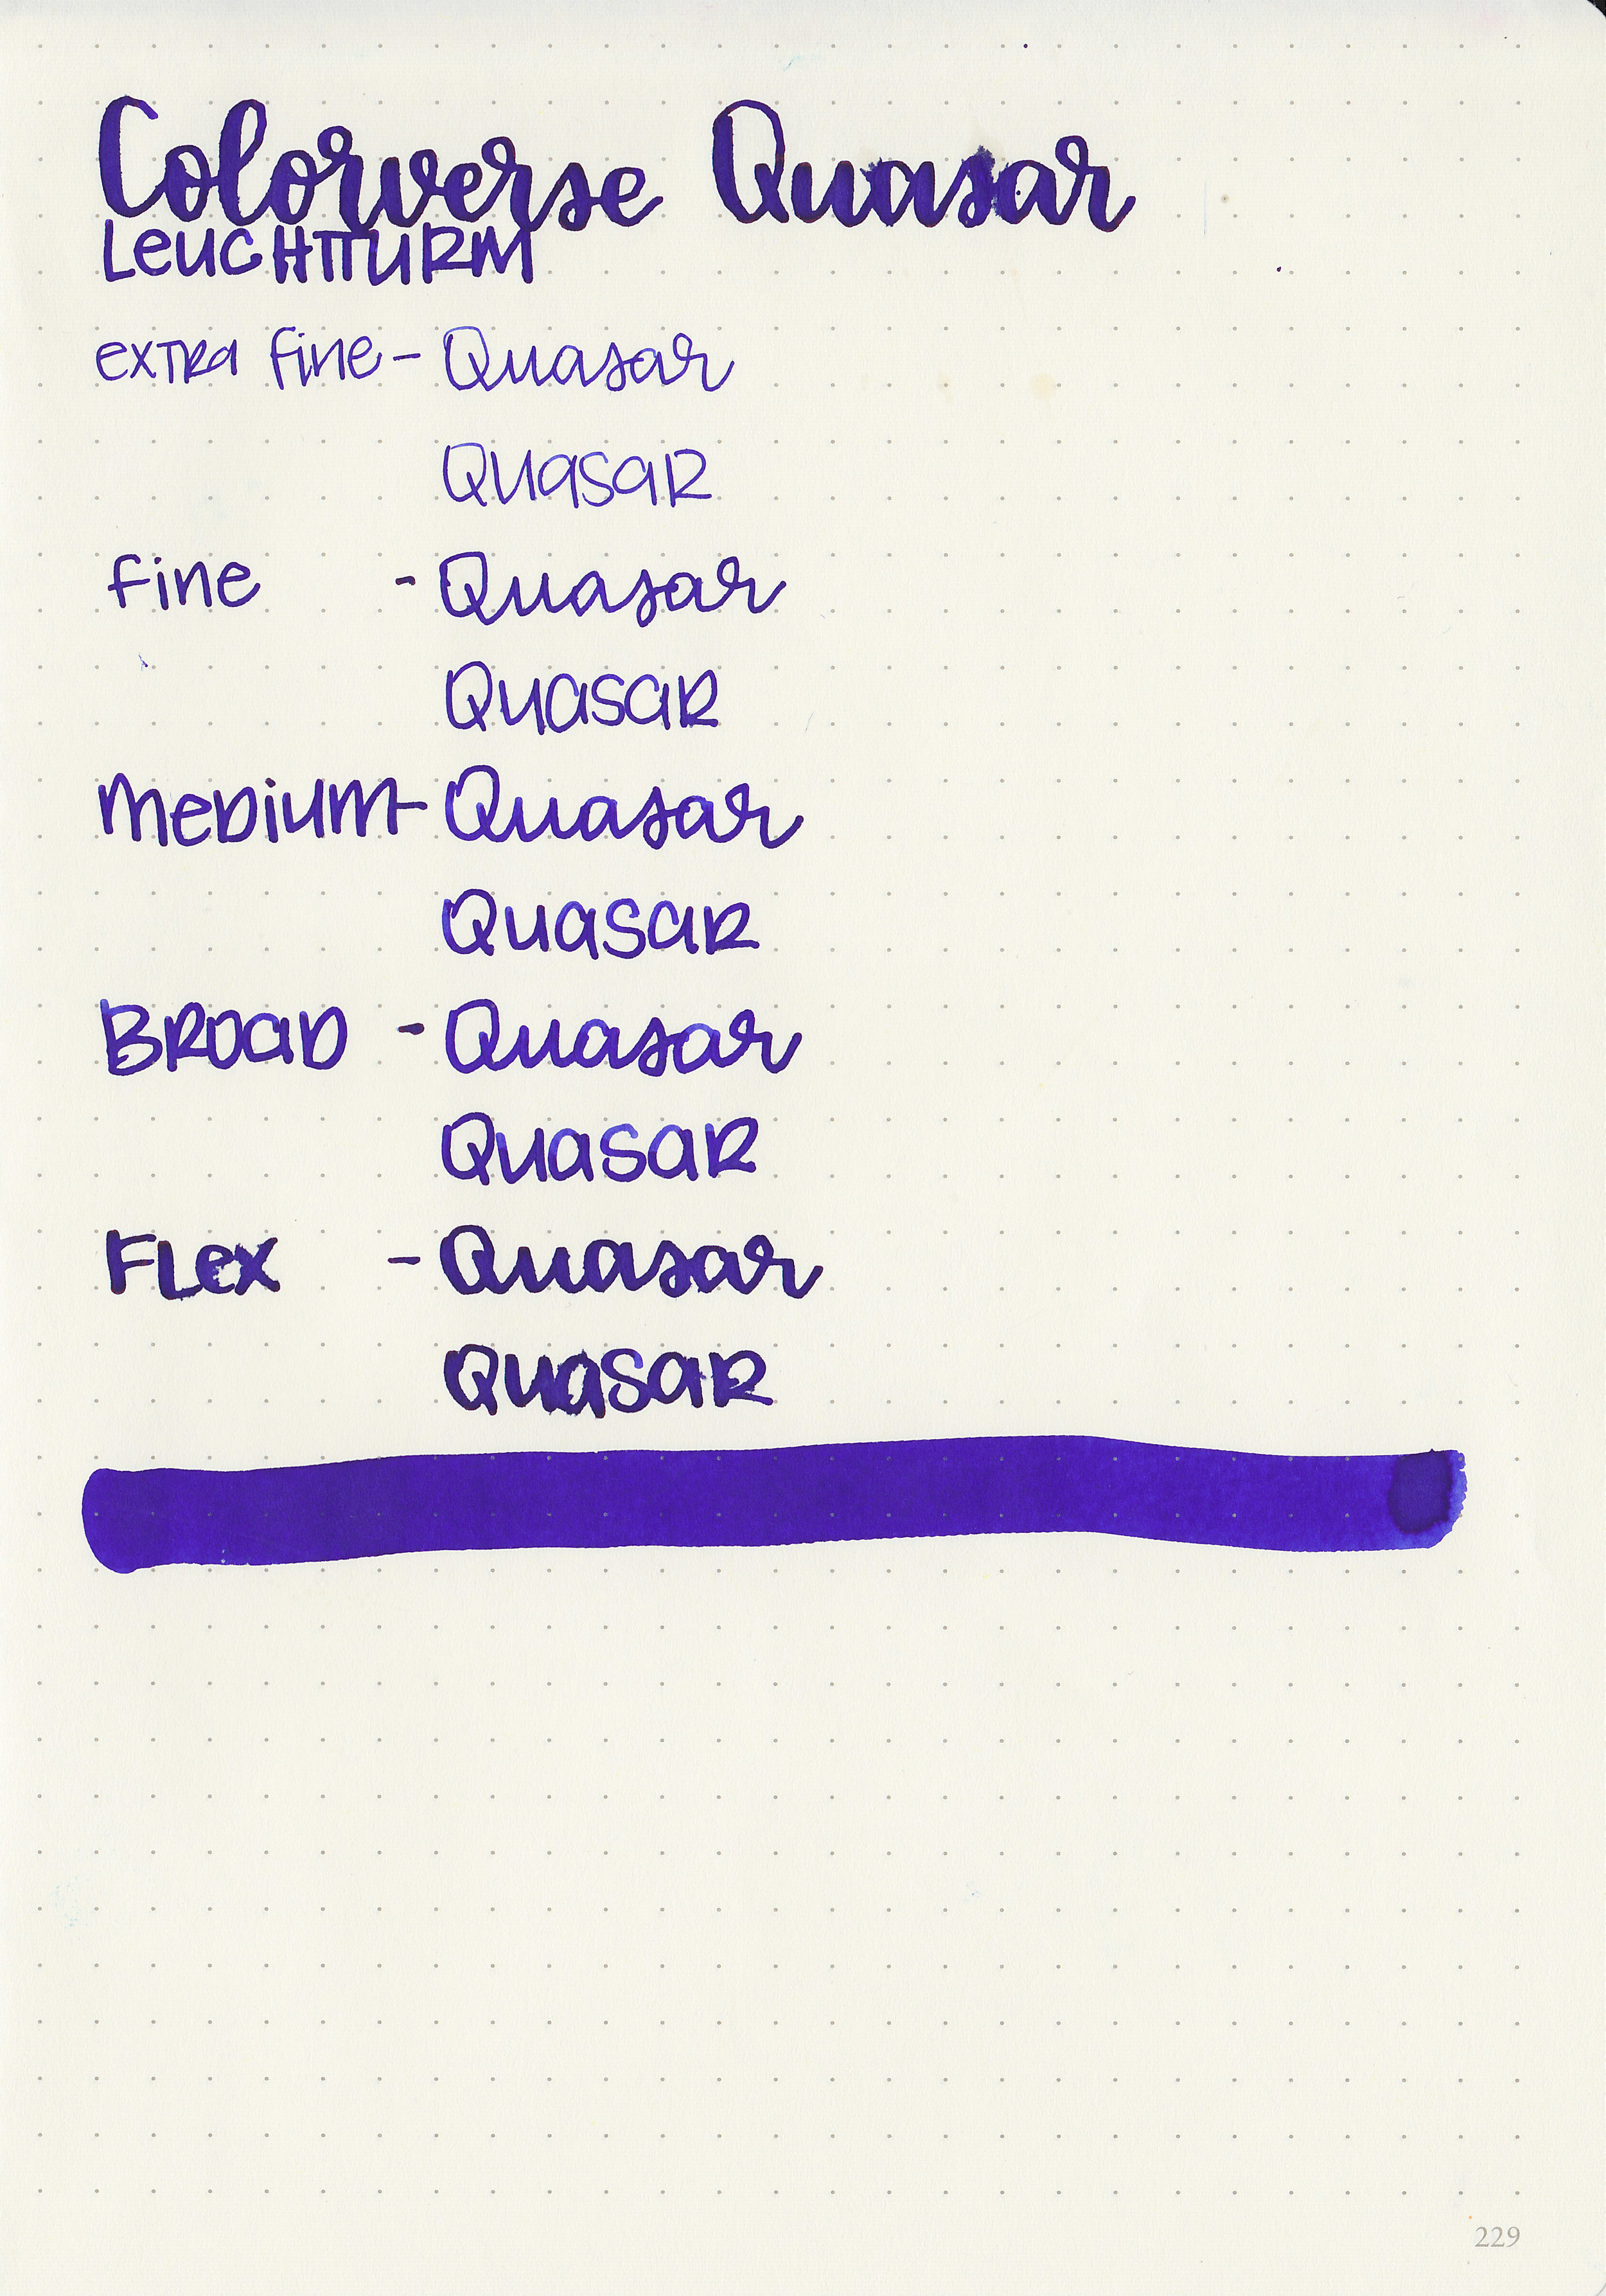 Colorverse Quasar
LeuchtturM
extra fine - Quasar
Quasar
fine - Quasar
Quasar
Medium - Quasar
Quasar
Broad - Quasar
Quasar
Flex - Quasar
Quasar
229